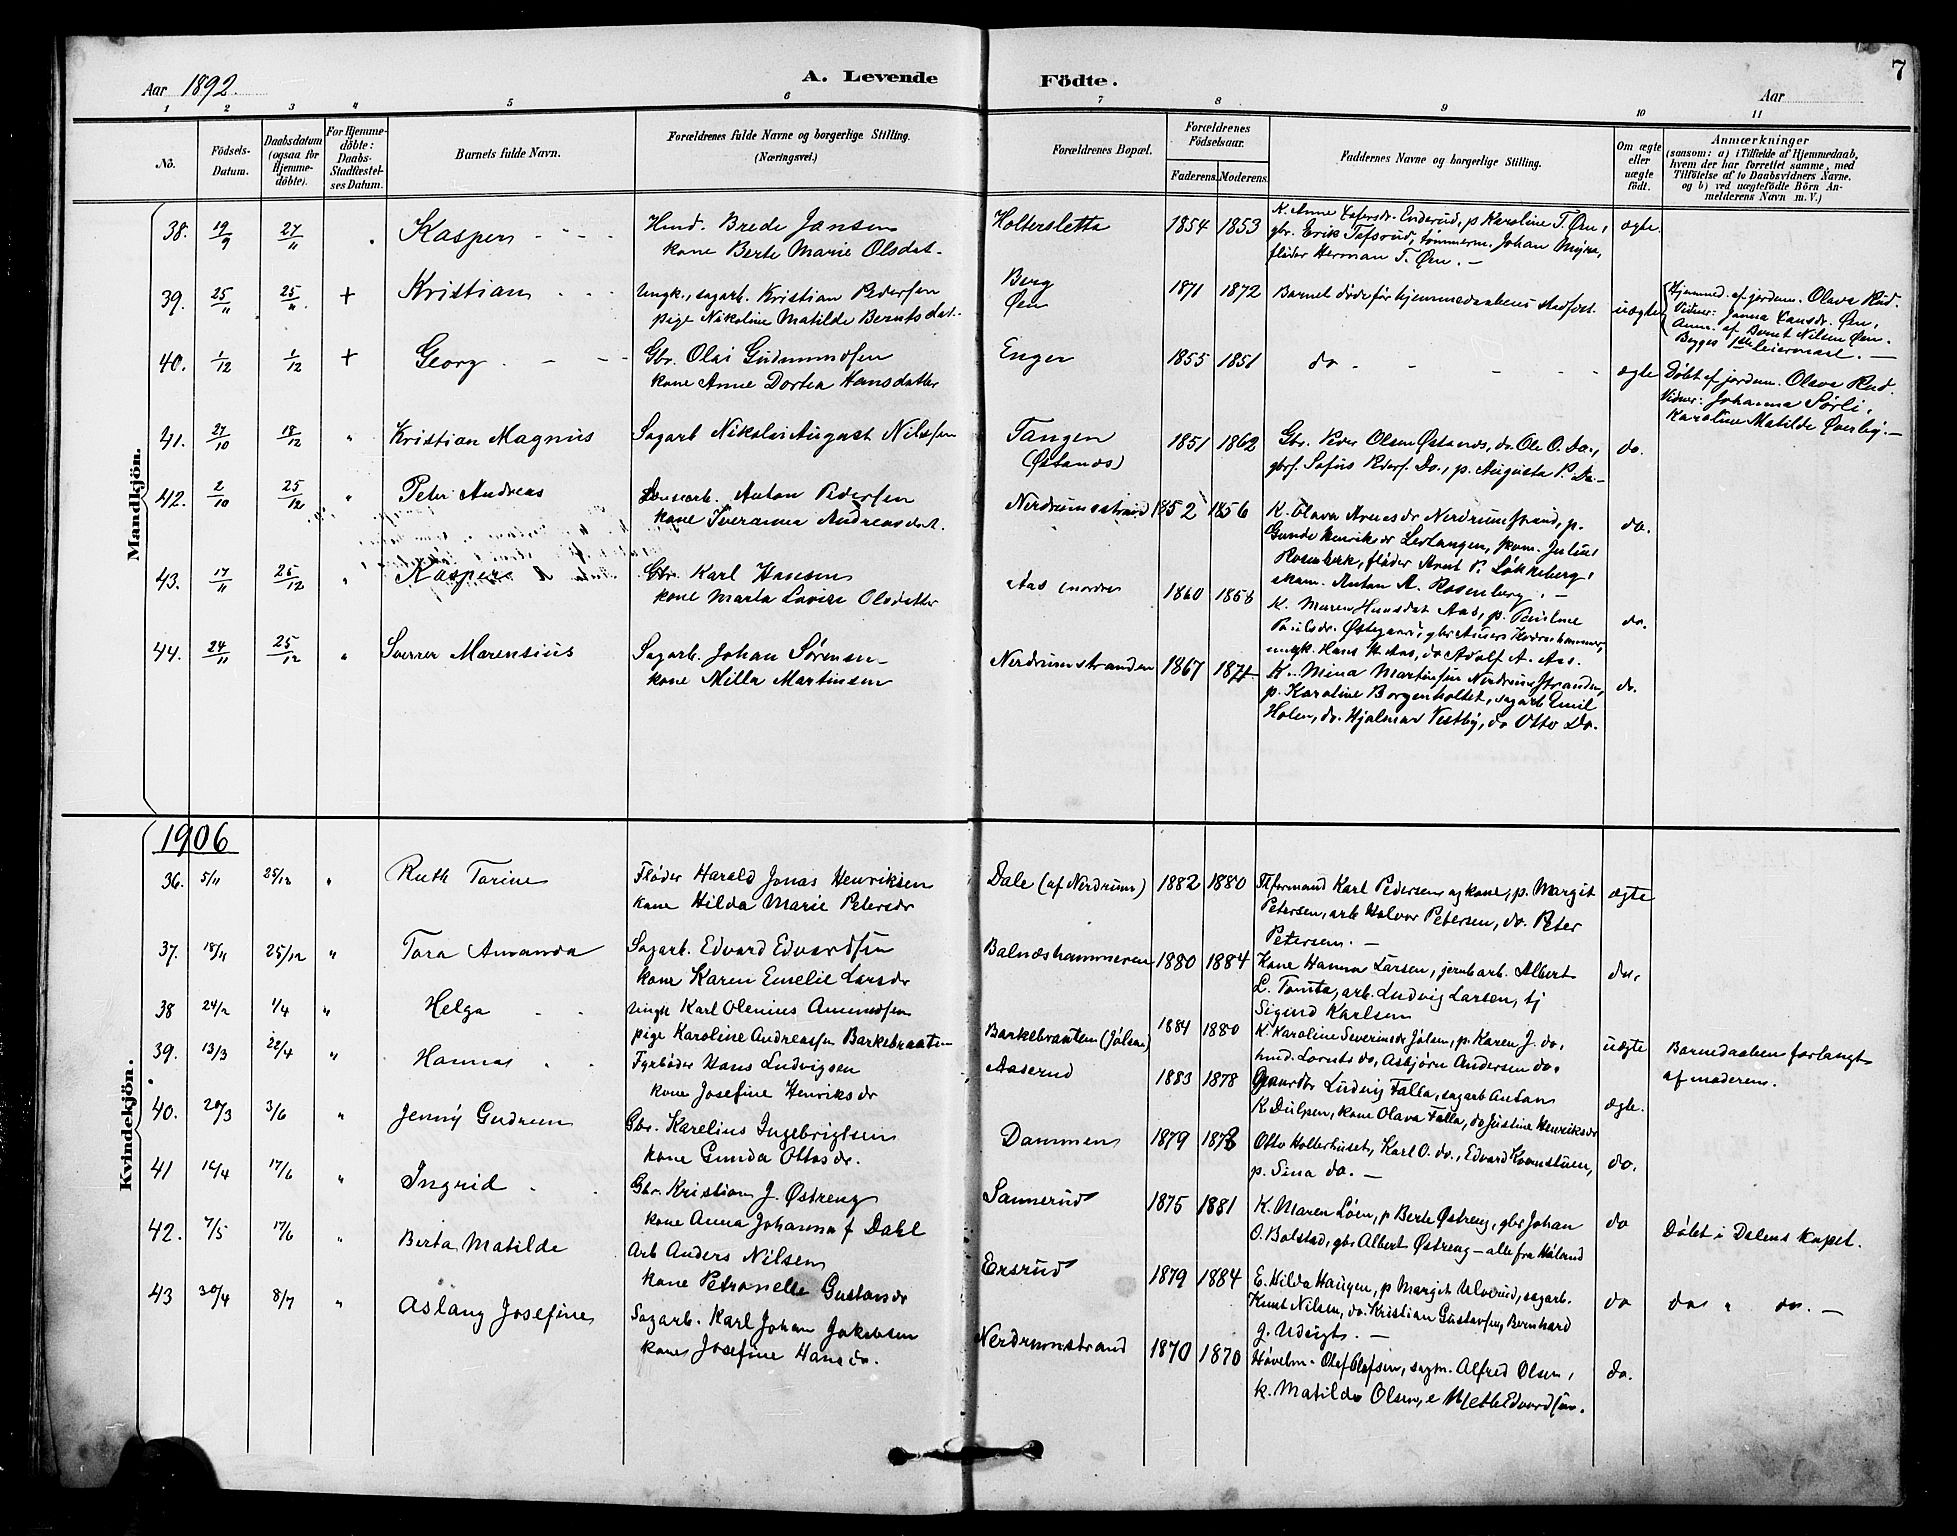 7
Aar 1892.
A. Levende Födte.
Aar
1 2 3 4 5 6 7 8 9 10 11
No.
Födsels-Datum.
Daabsdatum (ogsaa for Hjemme-döbte).
For Hjemme-döbte: Daabs-Stadfæstel-ses Datum.
Barnets fulde Navn.
Forældrenes fulde Navne og borgerlige Stilling. (Næringsvei.)
Forældrenes Bopæl.
Forældrenes Födselsaar.
Faderens. Moderens.
Faddernes Navne og borgerlige Stilling.
Om ægte eller uægte födt.
Anmærkninger
(saasom: a) i Tilfælde af Hjemmedaab,
hvem der har forrettet samme, med
Tilföielse af to Daabsvidners Navne,
og b) ved uægtefödte Börn An-
melderens Navn m. V.)
Mandkjön.
38. 19/9 27/11 Kasper Hmd. Brede Jansen
kone Berte Marie Olsdat. Holtersletta 1854 1853
K. Anne Enderud, p Karoline T. Øen,
gbr. Erik Tofsrud, tømmerm. Johan Myra,
fløder Herman T. Øen. — ægte.
39. 25/11 25/11 + Kristian Ungk., sagarb. Kristian Pedersen
pige Nikoline Matilde Berntsdat. Berg
Øen 1871 1872 Barnet døde før hjemmedaabens stadfæst. uægte
Hjemmed. af jordem. Olava Rud.
Vidner: Janna Hansdr. Øen,
Anm. af Bernt Nilsen Øen.
Begges 1ste leiermaal. —
40. 1/12 1/12 + Georg Gbr. Olai Gudmundsen
kone Anne Dortea Hansdatter Enger 1855 1851 do - - - - ægte
Døbt af jordem. Olava Rud.
Vidner: Johanna Sørli,
Karoline Matilde Øverby. —
41. 27/10 18/12 " Kristian Magnus Sagarb Nikolai August Nilssen Tangen
(Østands) 1851 1862
Gbr. Peder Olsen Østands, do. Ole O. Do.,
gbrs. Sofus Peders. Do., p. Augusta P. Do — do.
42. 2/10 25/12 " Peter Andreas Anton Pedersen
kone Iveranna Andreasdat. Nerdrumsstrand 1852 1856
K. Olava Arensdr Nerdrumstrand, p.
Gunda Henriksdr Levtangen, Julius
Rosenbirk, fløder Arnt P. Løkkeberg,
Anton A. Rosenberg. — do.
43. 17/11 25/12 " Kasper Gbr Karl Hansen
kone Marta Lovise Olsdatter Aas nordre 1860 1858
K. Maren Hansdat Aas, p. Pauline
Paulsdr. Østegaard,
ungk. Hans H. Aas, do Adolf A. Aas. do.
44. 24/11 25/12 " Sverrer Marensius Sagarb. Johan Sørensen
kone Milla Martinsen Nerdrumstranden 1867 1871
K. Mina Martinsen Nerdrumsstranden,
p. Karoline Borgenholtet, sagarb Emil
Holen, do. Hjalmar Vestby, do Otto Do. do.
Kvindekjön.
1906
36. 5/11 25/12 " Ruth Torine Fløder Harald Jonas Henriksen
kone Hilda Marie Petersdr Dale (af Nerdrum) 1882 1880
Karl Pedersen og kone, p. Margit
Petersen, arb Halvor Petersen, do. Peter
Petersen. — ægte
37. 18/11 25/12 " Tora Amanda Sagarb. Edvard Edvardsen
kone Karen Emelie Larsdr Balnæshammeren 1880 1884
Kone Hanna Larsen, jernbarb. Albert
L. Tomta, arb. Ludvig Larsen, tj
Sigurd Karlsen do.
38 24/2 1/4 " Helga Ungk Karl Olenius Amundsen
pige Karoline Andreassen Barkebraaten Barkebraaten (Jølen) 1884 1880
K Karoline Severinsdr Jølen, p. Karen J. do,
hmd. Lorents do, Asbjørn Andersen do. uægte
Barnedaaben forlangt
af moderen.
39. 13/3 22/4 " Hanna Fyrbøder Hans Ludvigsen
kone Josefine Henriksdr Aaserud 1883 1878
Gaardbr Ludvig Falla, sagarb Anton
K. Dulpen, kone Olava Falla, do Justine Henriksdr ægte.
40. 20/3 3/6 " Jenny Gudrun Gbr. Karelius Ingebrigtsen
kone Gunda Ottosdr. Dammen 1879 1878
Otto Holterhuset, Karl O. do., Edvard Kvernstuen,
p. Sina do. — do.
41 16/4 17/6 " Ingrid Gbr. Kristian J. Østreng
kone Anna Johanna f Dahl Sannerud 1875 1881
K. Maren Løen, p Berte Østreng, gbr Johan
O. Bolstad, gbr Albert Østreng — alle fra Høland do
Døbt i Dalens kapel.
42. 7/5 17/6 " Berta Matilde Arb Anders Nilsen
kone Petronelle Gustavsdr Ersrud 1879 1884
E. Hilda Haugen, p Margit Ulverud, sagarb.
Knut Nilsen, do. Kristian Gustavsen, Bernhard
G. Udsigt. — do
do " do. —
43 30/4 8/7 " Aslaug Josefine Sagarb. Karl Johan Jakobsen
kone Josefine Hansdr. Nerdrumstrand 1870 1870
Høvelm. Olaf Olafsen, sagm. Alfred Olsen,
k. Matilde Olsen, e Mette Edvardsen. do.